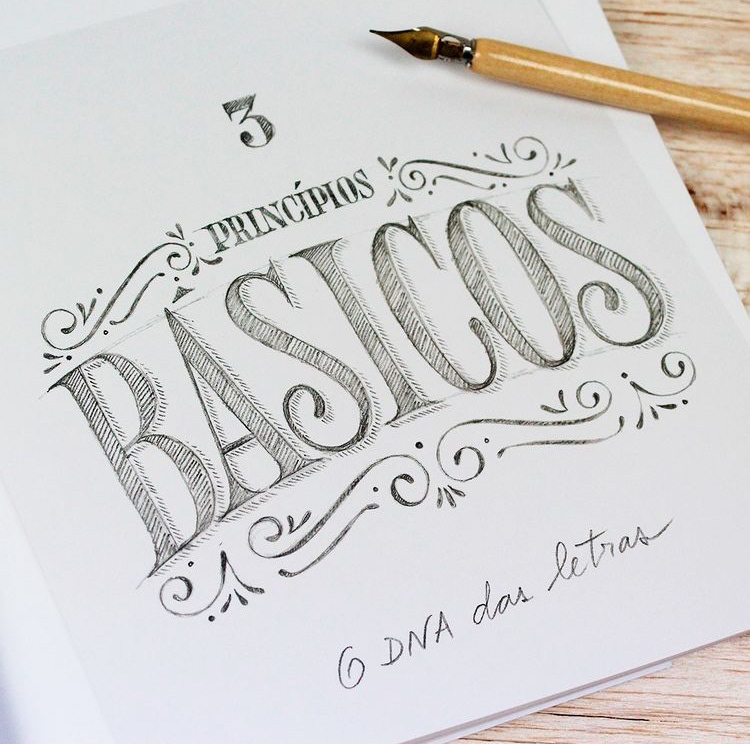 3
PRINCÍPIOS
BASICOS
O DNA das letras